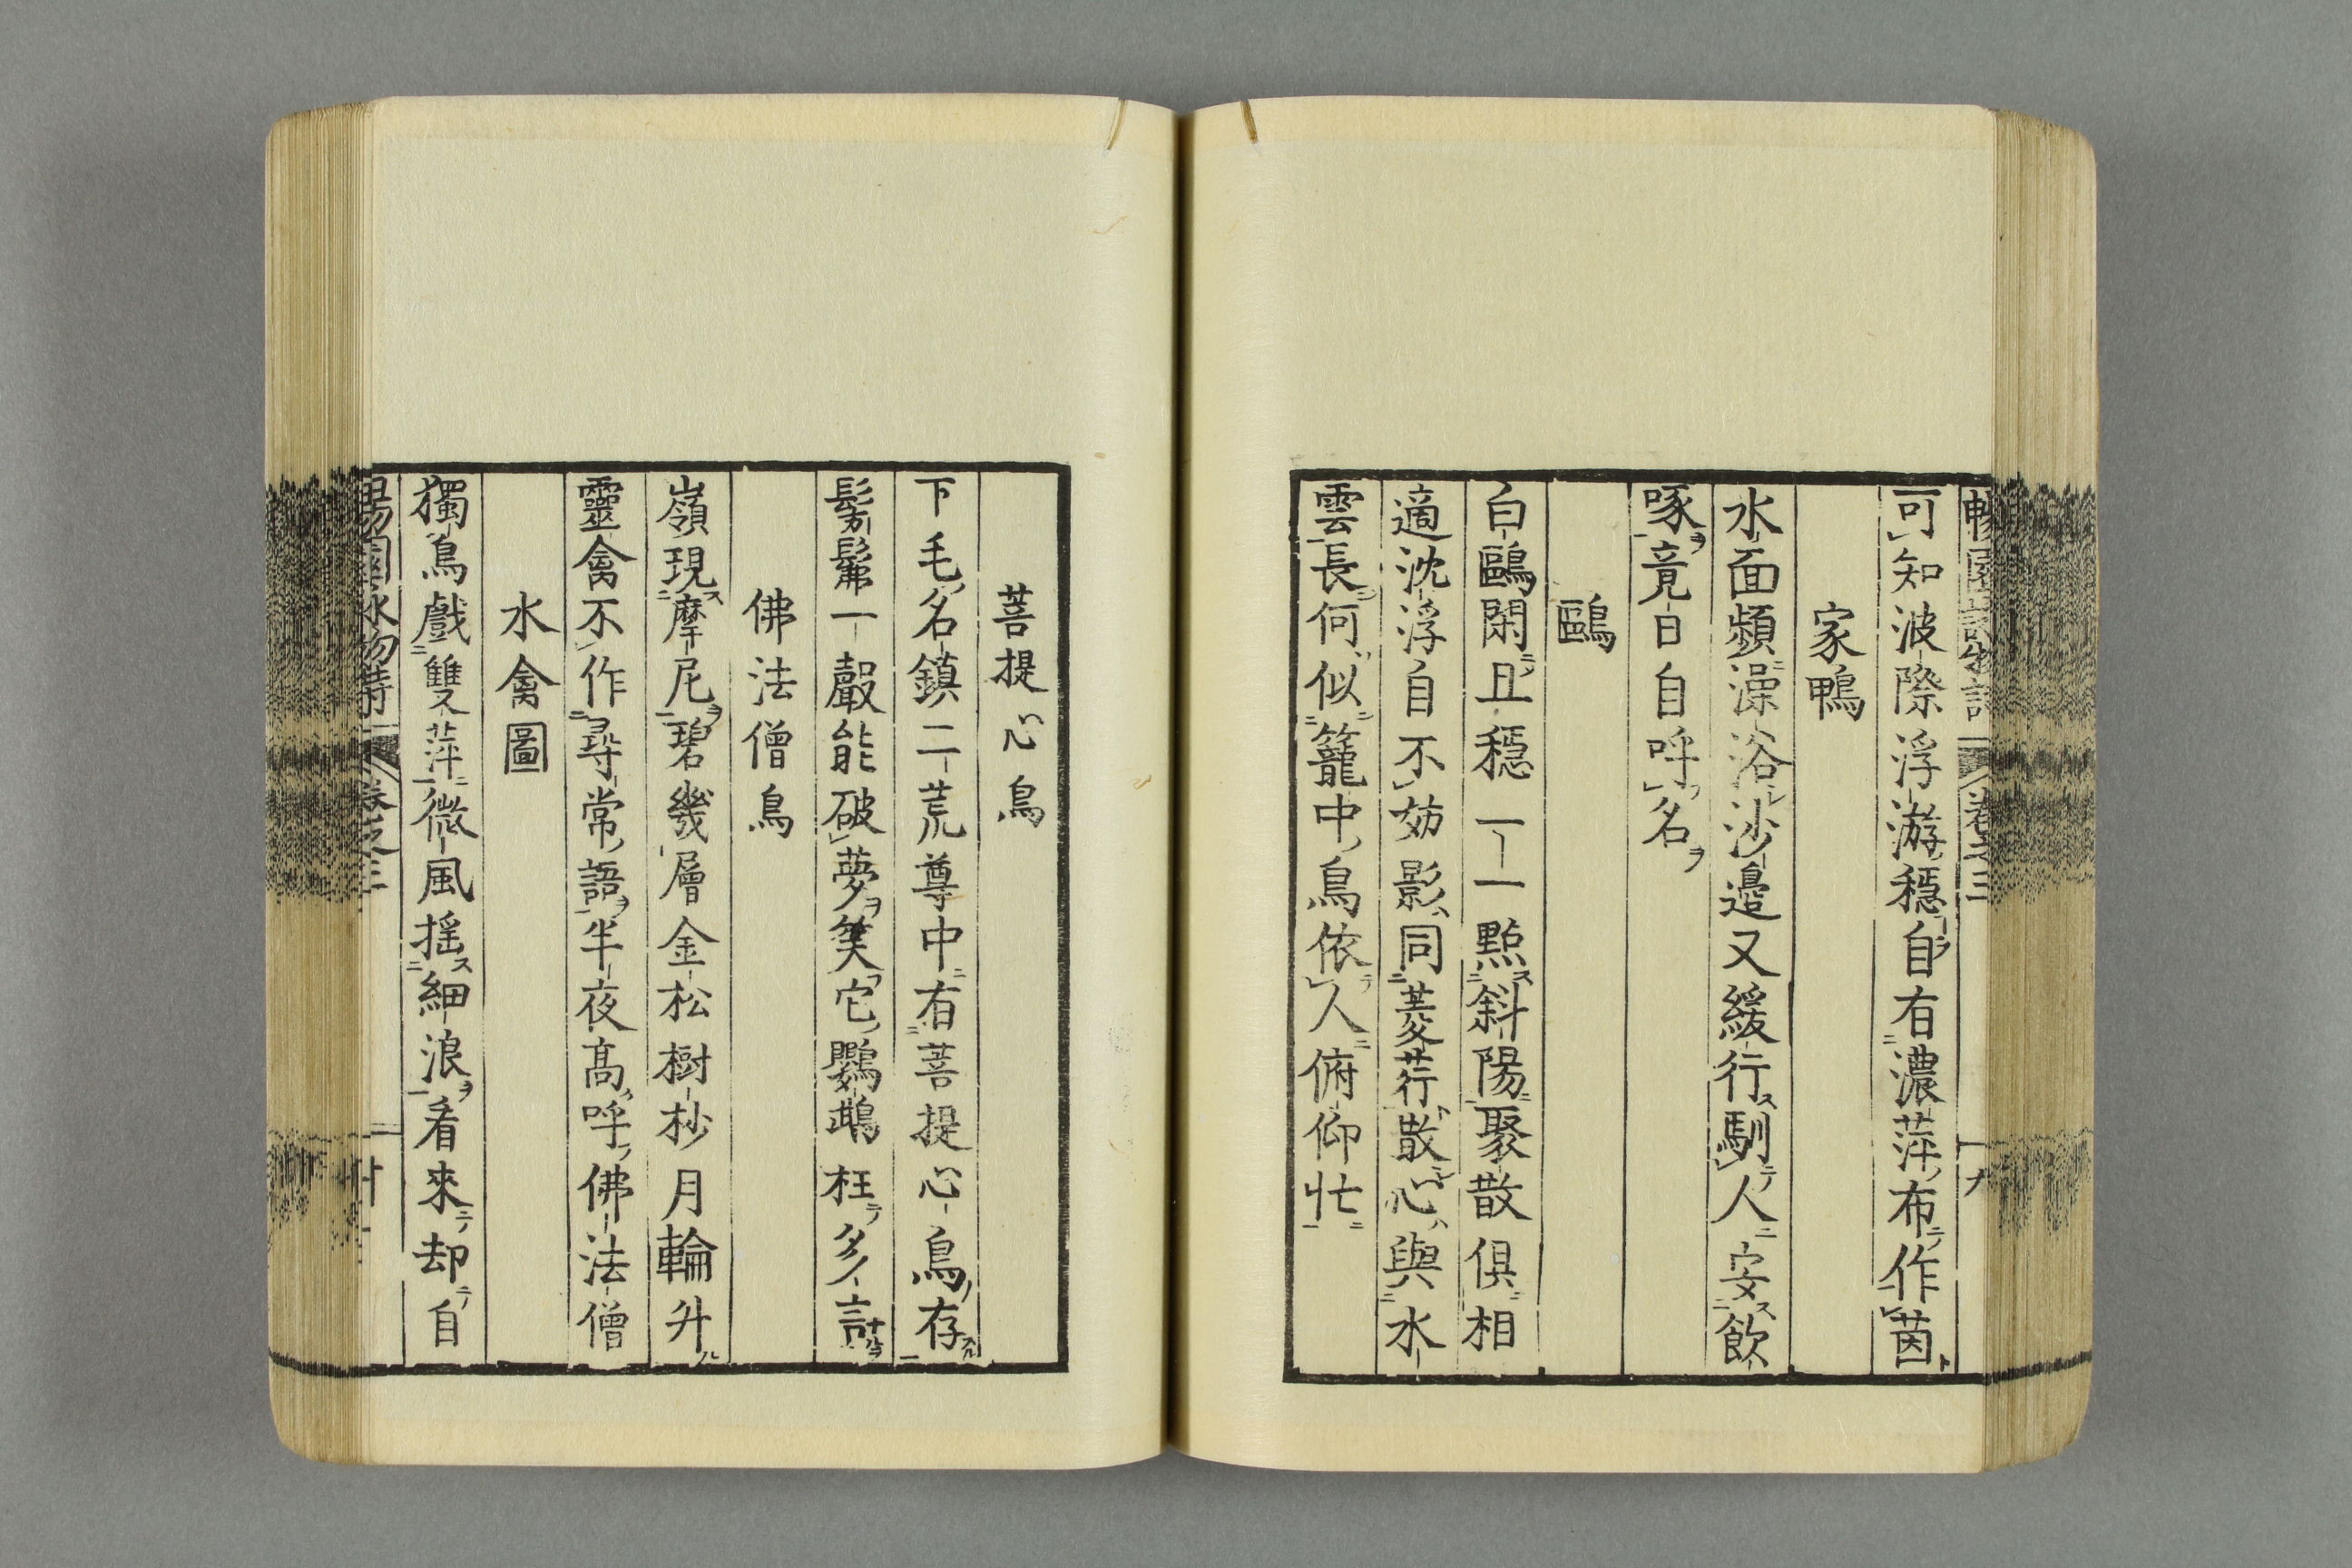 可知波際浮游穩自有濃萍布作茵
家鴨
水面頻澡浴沙邊又緩行馴人安飲
啄竟日自呼名
鷗
白鷗閑且穩一一點斜陽聚散俱相
適沈浮自不妨影同菱荇散心與水
雲長何似籠中鳥依人俯仰忙
菩提心鳥
下毛名鎮二荒尊中有菩提心鳥存
髣髴一聲能破夢笑它鸚鵡枉多言
佛法僧鳥
嶺現摩尼碧幾層金松樹杪月輪升
靈禽不作尋常語半夜高呼佛法僧
水禽圖
獨鳥戲雙萍微風搖細浪看來却自